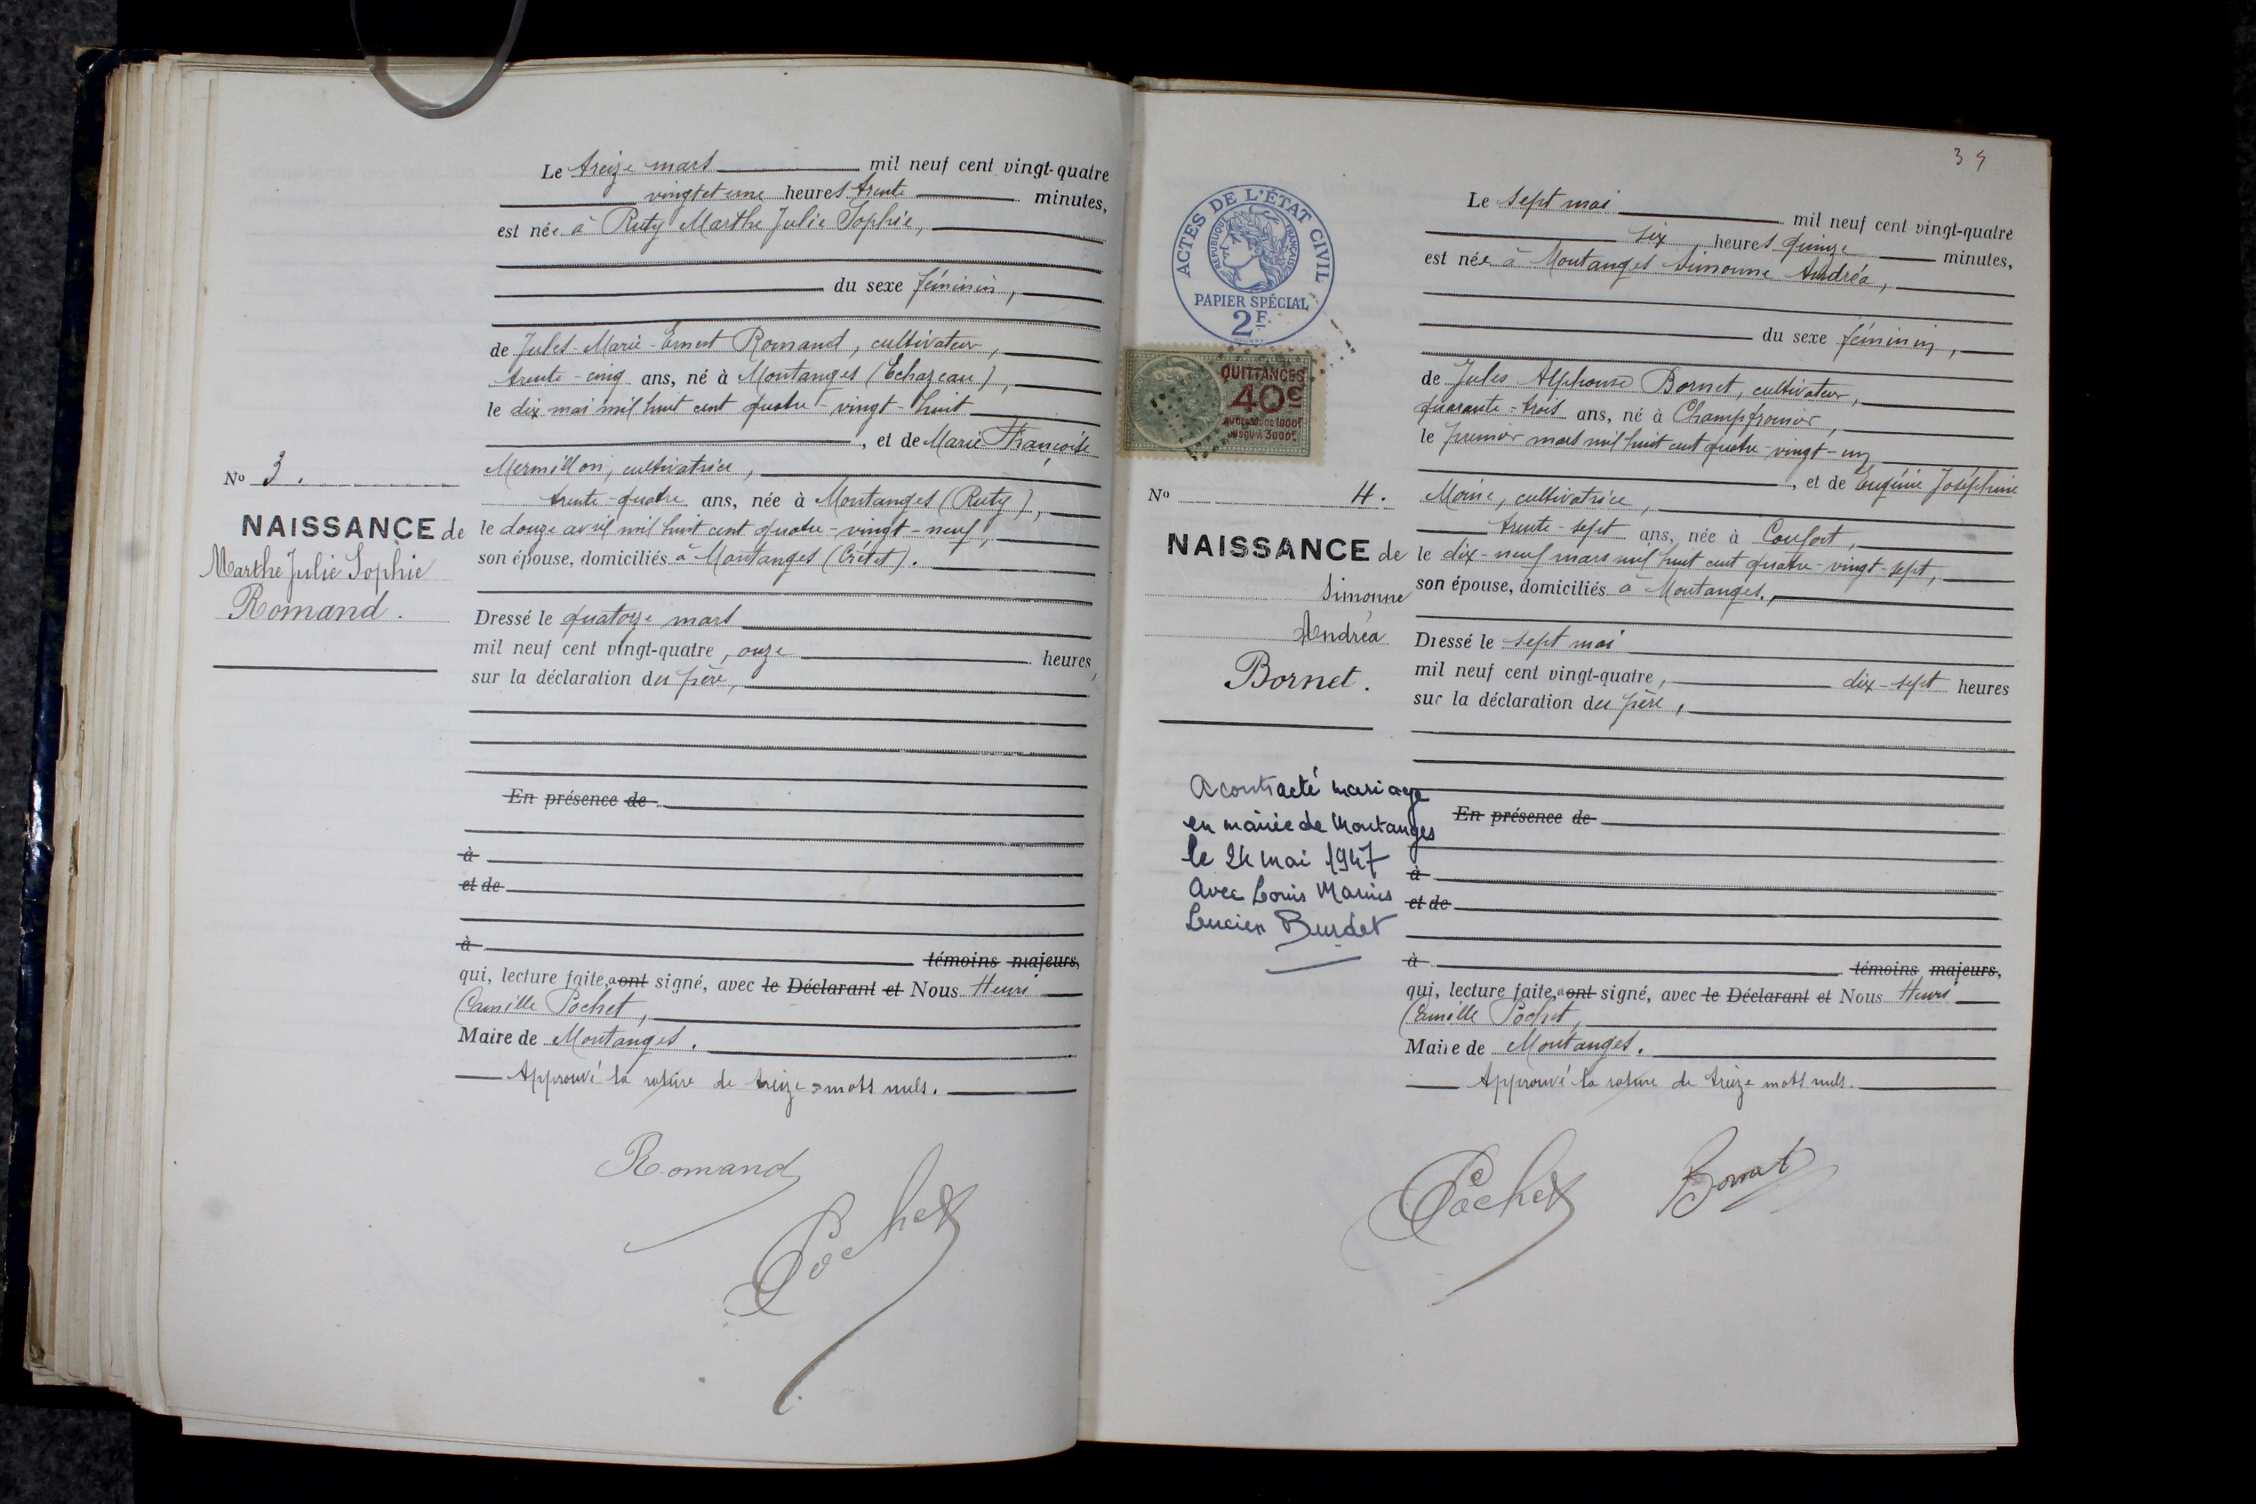 Le treize mars mil neuf cent vingt-quatre
vingt et une heures trente minutes,
est née à Ruty Marthe Julie Sophie,
du sexe féminin,
de Jules-Marie-Ernest Romand, cultivateur,
trente-cinq ans, né à Montanges (Echazeau),
le dix mai mil huit cent quatre-vingt-huit
, et de Marie-Françoise
Mermillon, cultivatrice,
trente-quatre ans, née à Montanges (Ruty),
le douze avril mil huit cent quatre-vingt-neuf,
son épouse, domiciliés à Montanges (Crêtet).
Dressé le quatorze mars
mil neuf cent vingt-quatre, onze heures,
sur la déclaration du père,
En présence de
à
et de
à témoins majeurs,
qui, lecture faite, a ont signé, avec le Déclarant et Nous Henri
Camille Pochet,
Maire de Montanges.
Approuvé la rature de treize mots nuls.
Romand
Pochet
No 3.
NAISSANCE de
Marthe Julie Sophie
Romand.
34
ACTES DE L'ÉTAT CIVIL
RÉPUBLIQUE FRANÇAISE
PAPIER SPÉCIAL
2F.
QUITTANCES
40c
AU-DESSUS DE 1000F
JUSQU'A 3000F
No 4.
NAISSANCE de
Simonne
Andréa
Bornet.
A contracté mariage
en mairie de Montanges
le 24 mai 1947
avec Louis Marius
Lucien Burdet
Le sept mai mil neuf cent vingt-quatre
six heures quinze minutes,
est née à Montanges Simonne Andréa,
du sexe féminin,
de Jules Alphonse Bornet, cultivateur,
quarante-trois ans, né à Champfromier,
le premier mars mil huit cent quatre-vingt-un
, et de Eugénie Joséphine
Moine, cultivatrice,
trente-sept ans, née à Confort,
le dix-neuf mars mil huit cent quatre-vingt-sept,
son épouse, domiciliés à Montanges,
Dressé le sept mai
mil neuf cent vingt-quatre, dix-sept heures
sur la déclaration du père,
En présence de
à
et de
à témoins majeurs,
qui, lecture faite, a ont signé, avec le Déclarant et Nous Henri
Camille Pochet,
Maire de Montanges.
Approuvé la rature de treize mots nuls.
Pochet
Bornet